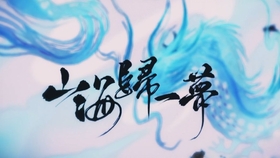 山海歸一夢